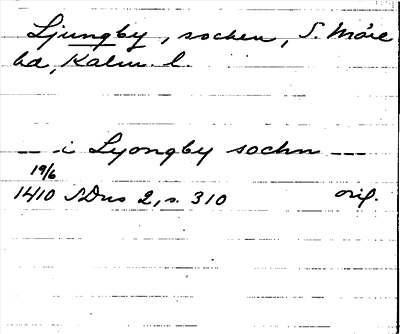 Ljungby, socken, S. Möre
hd, Kalm. l.
--- i Lyongby sochn ---
19/6
1410 SDns 2, s. 310 orig.